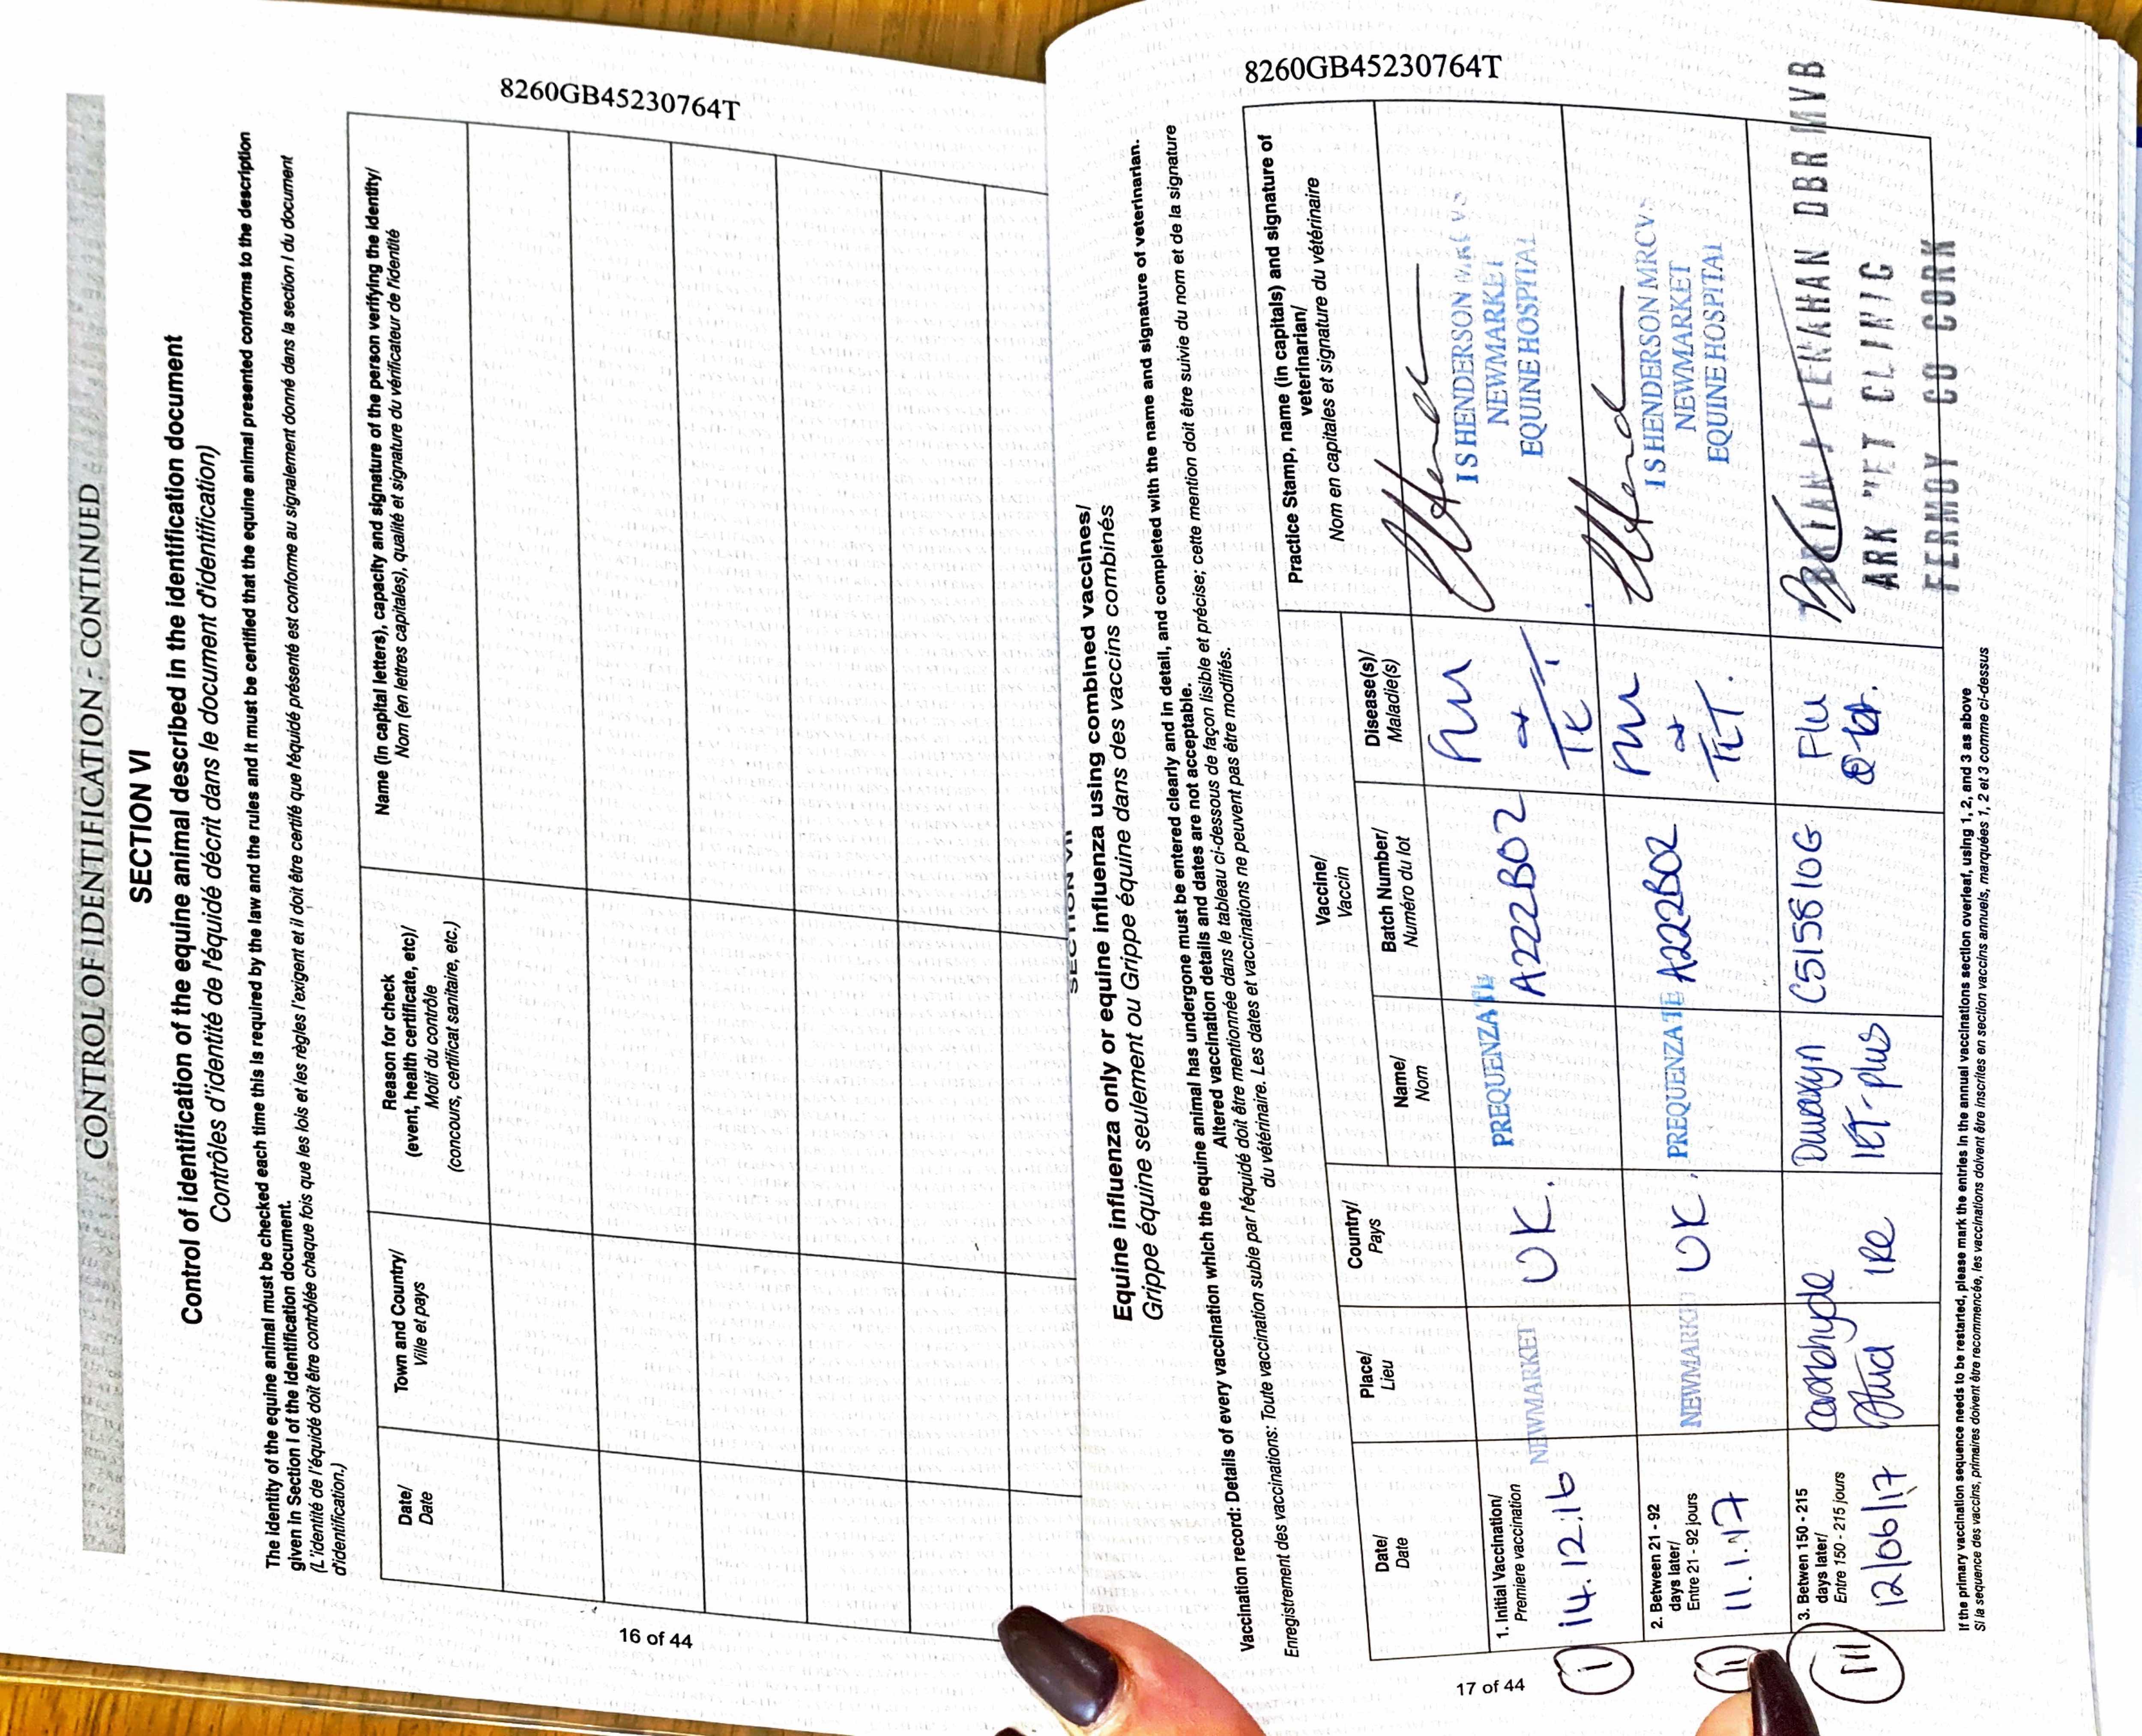 CONTROL OF IDENTIFICATION - CONTINUED
SECTION VI
Control of identification of the equine animal described in the identification document
Contrôles d'identité de l'équidé décrit dans le document d'identification)
The identity of the equine animal must be checked each time this is required by the law and the rules and it must be certified that the equine animal presented conforms to the description
given in Section I of the identification document.
(L'identité de l'équidé doit être contrôlée chaque fois que les lois et les règles l'exigent et il doit être certifé que l'équidé présenté est conforme au signalement donné dans la section I du document
d'identification.)
Date/
Date
Town and Country/
Ville et pays
Reason for check
(event, health certificate, etc)/
Motif du contrôle
(concours, certificat sanitaire, etc.)
Name (in capital letters), capacity and signature of the person verifying the identity/
Nom (en lettres capitales), qualité et signature du vérificateur de l'identité
16 of 44
8260GB45230764T
SECTION VII
Equine influenza only or equine influenza using combined vaccines/
Grippe équine seulement ou Grippe équine dans des vaccins combinés
Vaccination record: Details of every vaccination which the equine animal has undergone must be entered clearly and in detail, and completed with the name and signature of veterinarian.
Altered vaccination details and dates are not acceptable.
Enregistrement des vaccinations: Toute vaccination subie par l'équidé doit être mentionnée dans le tableau ci-dessous de façon lisible et précise; cette mention doit être suivie du nom et de la signature
du vétérinaire. Les dates et vaccinations ne peuvent pas être modifiés.
8260GB45230764T
Date/
Date
Place/
Lieu
Country/
Pays
Vaccine/
Vaccin
Name/
Nom
Batch Number/
Numéro du lot
Disease(s)/
Maladie(s)
Practice Stamp, name (in capitals) and signature of
veterinarian/
Nom en capitales et signature du vétérinaire
1. Initial Vaccination/
Premiere vaccination
14.12.16
NEWMARKET
UK.
PREQUENZA TE
A222B02
Flu
+
TET
I S HENDERSON MRCVS
NEWMARKET
EQUINE HOSPITAL
2. Between 21 - 92
days later/
Entre 21 - 92 jours
11.1.17
NEWMARKET
UK
PREQUENZA TE
A222B02
Flu
+
TET.
I S HENDERSON MRCVS
NEWMARKET
EQUINE HOSPITAL
3. Between 150 - 215
days later/
Entre 150 - 215 jours
12/06/17
Castlehyde
Stud
IRE
Duvaxyn
IET-plus
C515810G
Flu
LENAHAN DBR MVB
ARK VET CLINIC
FERMOY CO CORK
17 of 44
I
II
III
If the primary vaccination sequence needs to be restarted, please mark the entries in the annual vaccinations section overleaf, using 1, 2, and 3 as above
Si la sequence des vaccins, primaires doivent être recommencée, les vaccinations doivent être inscrites en section vaccins annuels, marquées 1, 2 et 3 comme ci-dessus